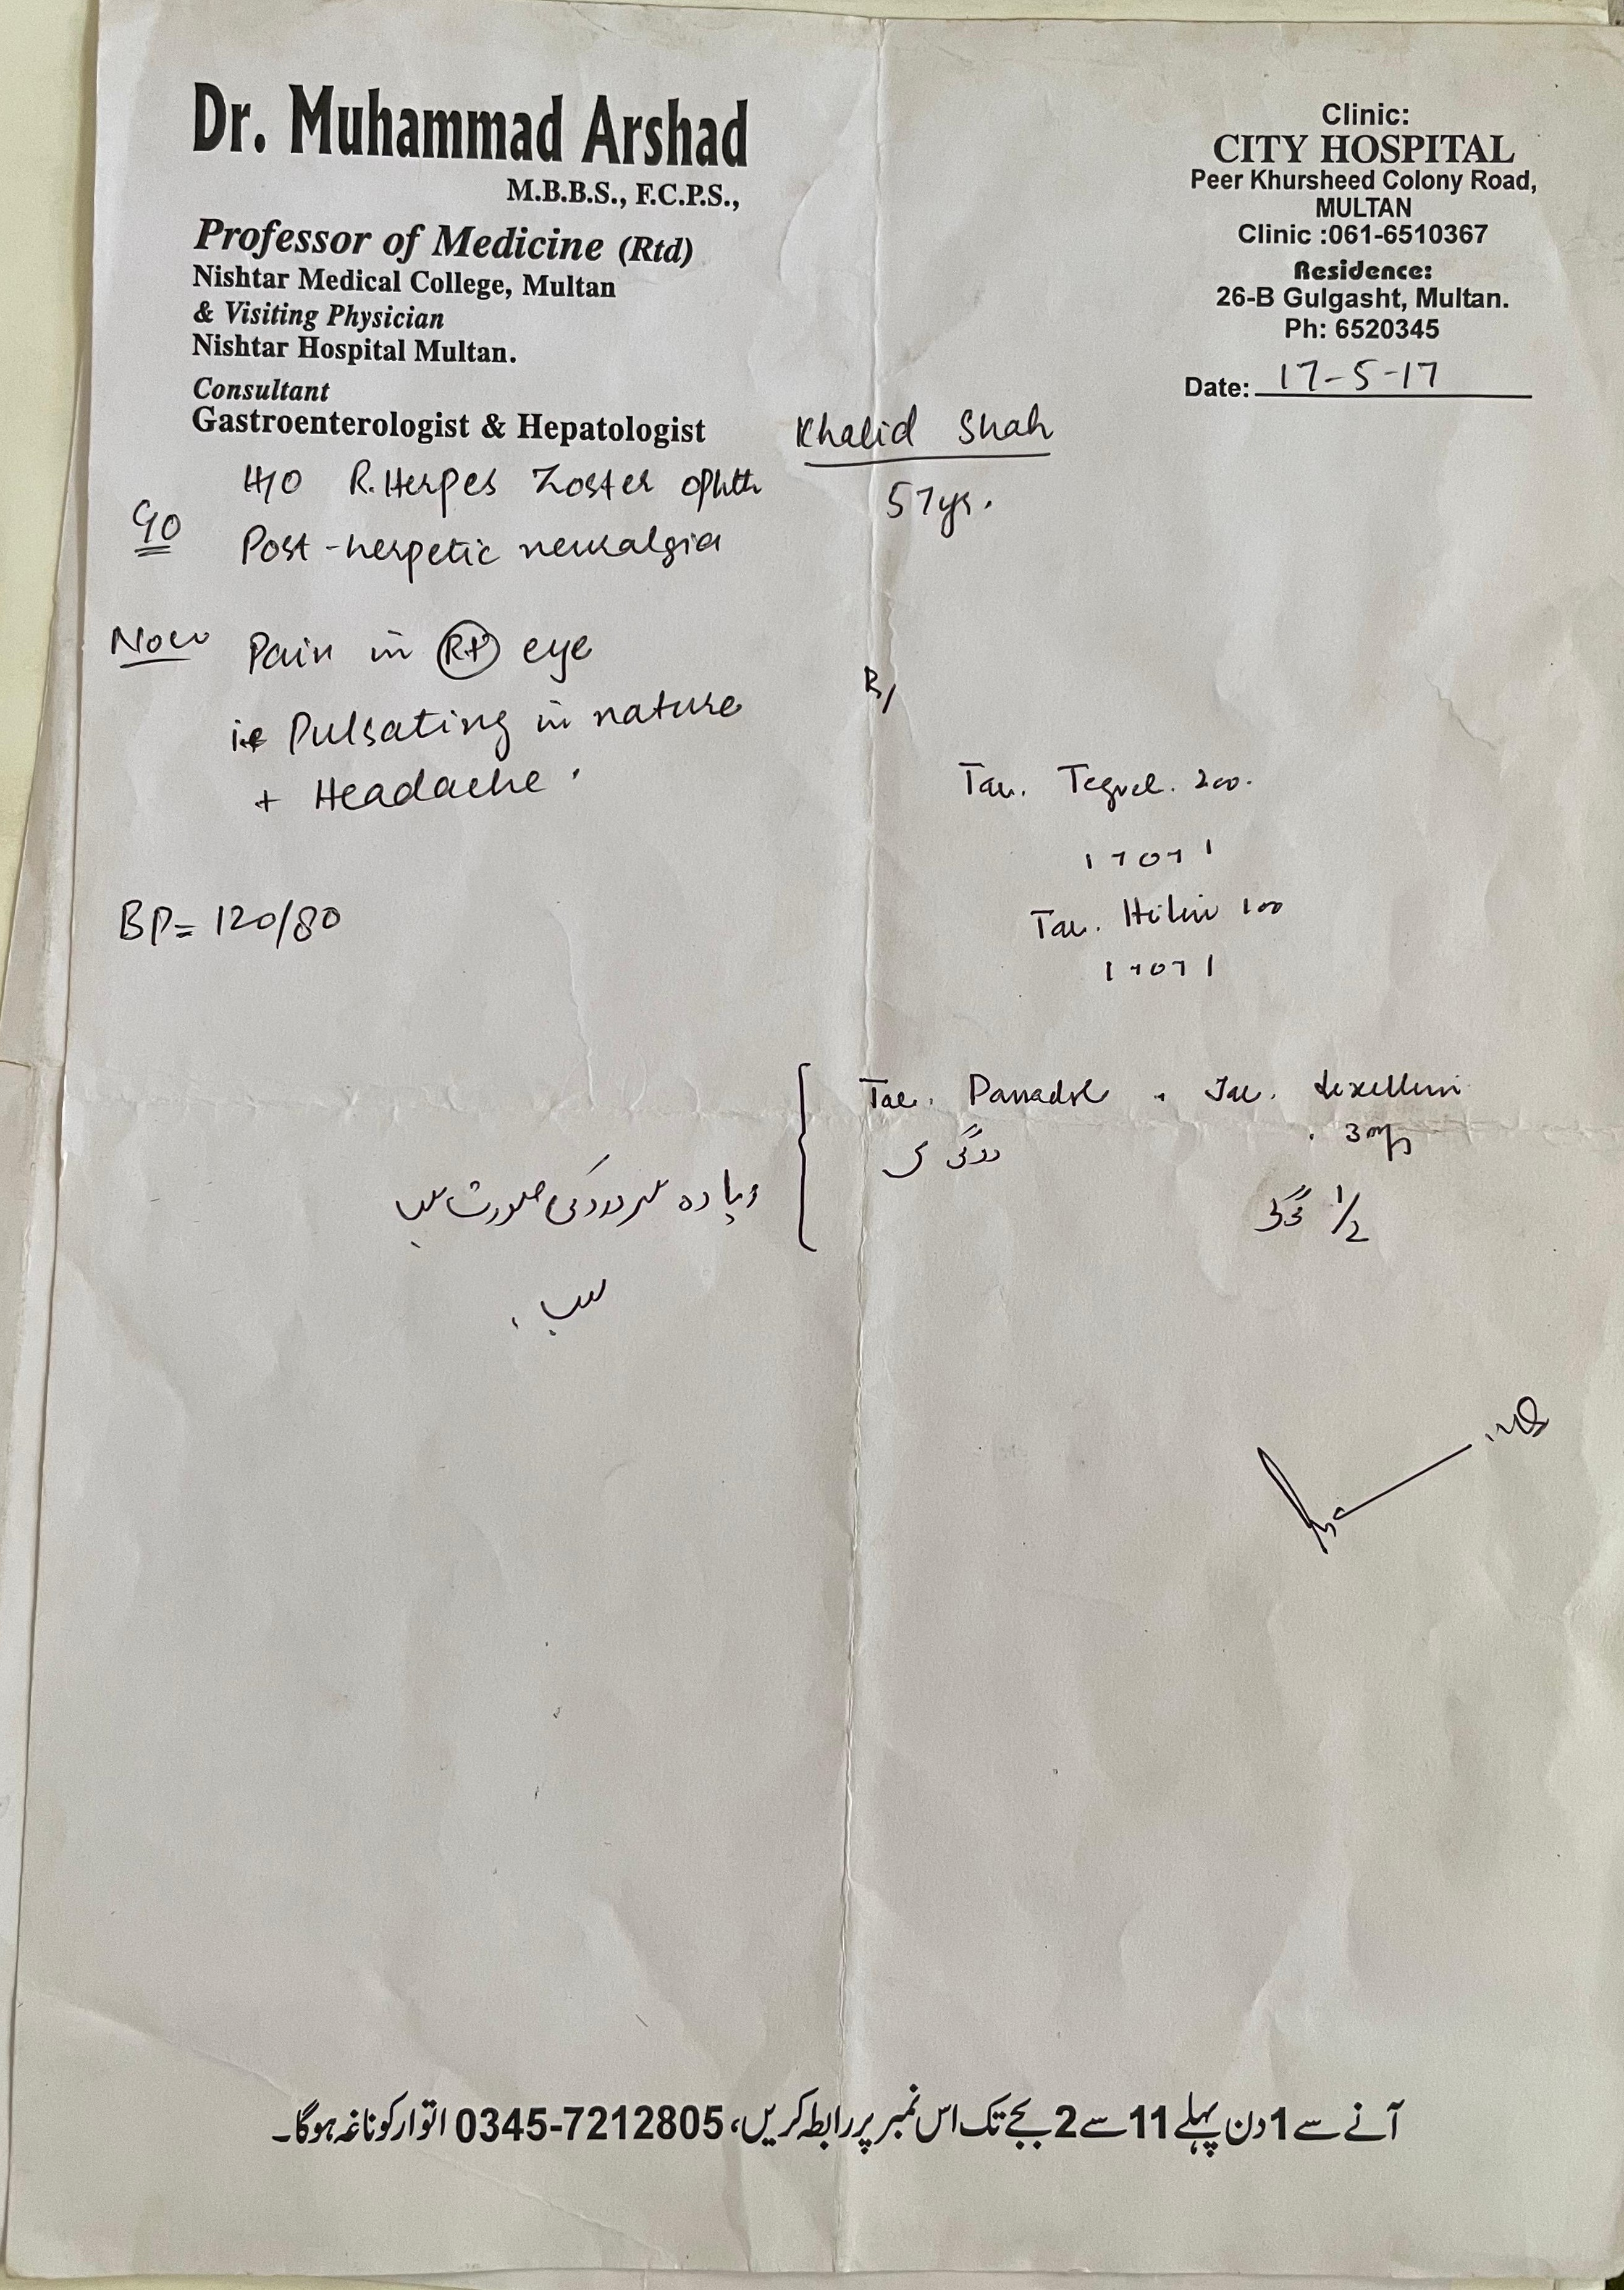 Dr. Muhammad Arshad
M.B.B.S., F.C.P.S.,
Professor of Medicine (Rtd)
Nishtar Medical College, Multan
& Visiting Physician
Nishtar Hospital Multan.
Consultant
Gastroenterologist & Hepatologist
Clinic:
CITY HOSPITAL
Peer Khursheed Colony Road,
MULTAN
Clinic :061-6510367
Residence:
26-B Gulgasht, Multan.
Ph: 6520345
Date: 17-5-17
Khalid Shah
57yrs.
H/O R. Herpes Zoster ophth
Post-herpetic neuralgia
Now Pain in Rt eye
i.e Pulsating in nature
+ Headache.
BP= 120/80
R/
Tab. Tegral. 200.
1 + 0 + 1
Tab. 100
1 + 0 + 1
Tab. Panadol + Tab.
3mg
1/2 گولی
زیادہ سر درد کی صورت میں
آنے سے 1 دن پہلے 11 سے 2 بجے تک اس نمبر پر رابطہ کریں، 0345-7212805 اتوار کو ناغہ ہوگا۔